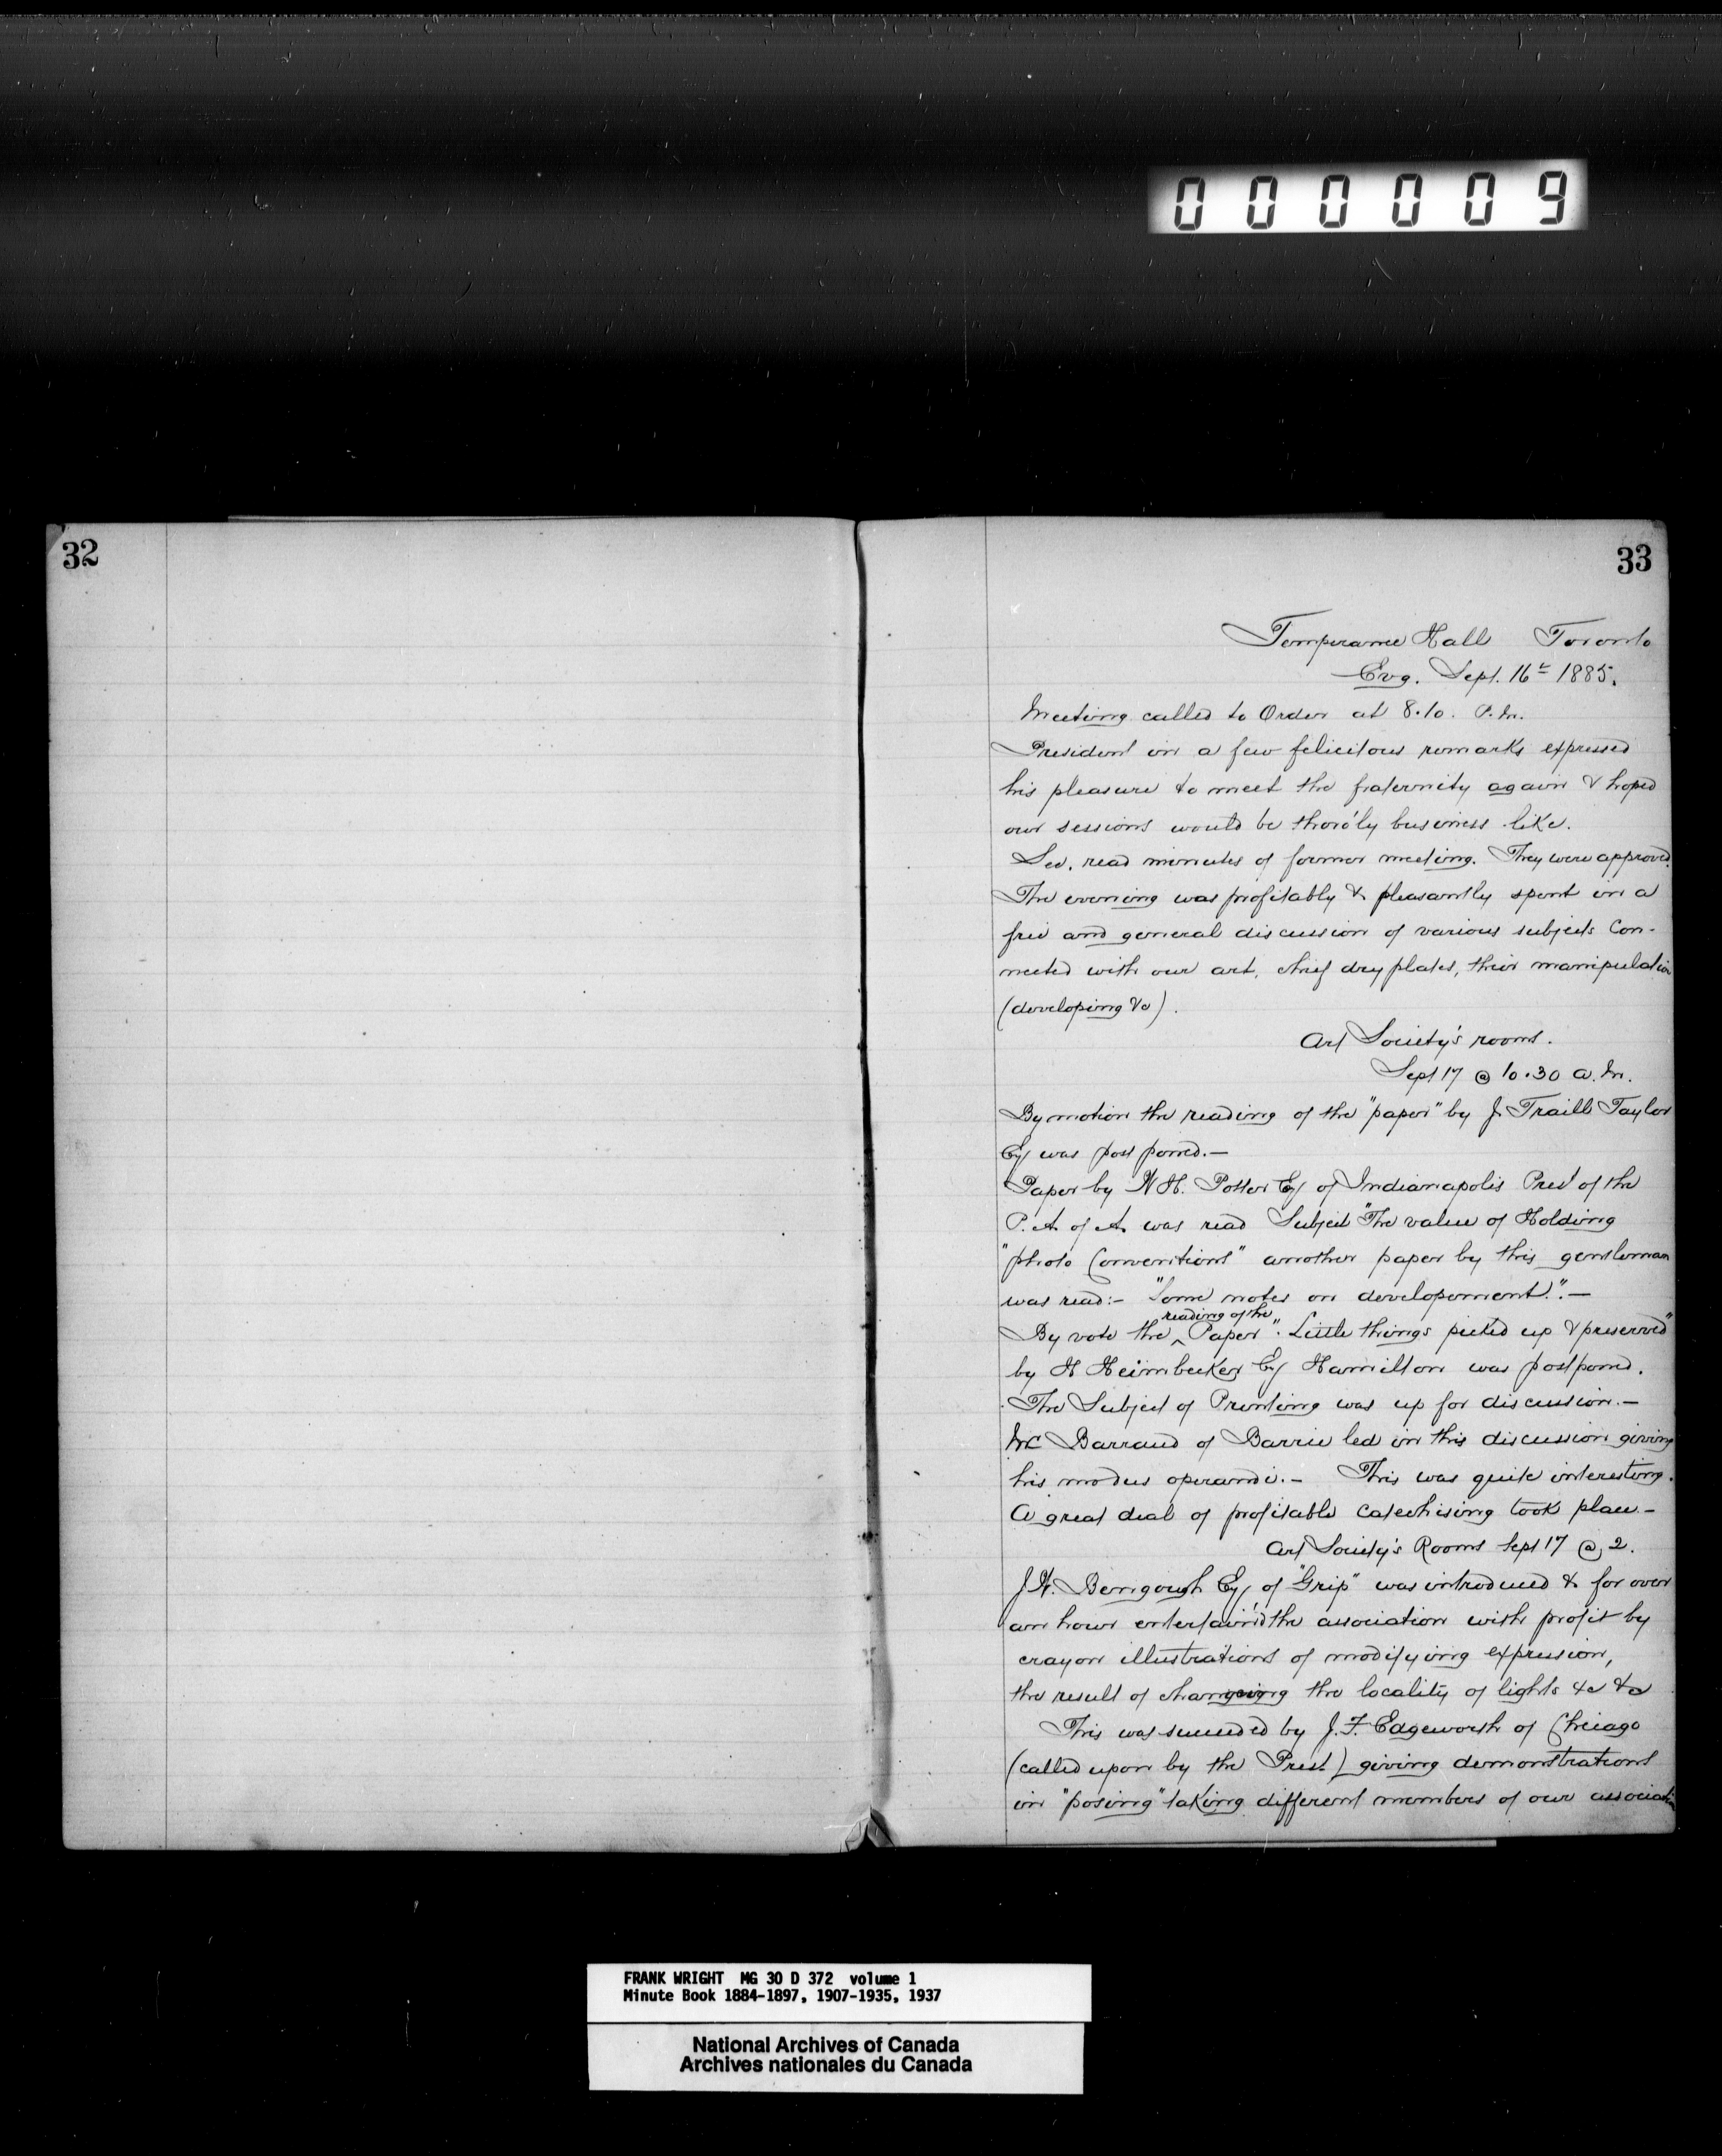 000009
32
33
Temperance Hall Toronto
Evg. Sept. 16th 1885.
Meeting called to Order at 8.10. P.M.
President in a few felicitous remarks expressed
his pleasure to meet the fraternity again & hoped
our sessions would be thoro'ly business like.
Sec. read minutes of former meeting. They were approved.
The evening was profitably & pleasantly spent in a
free and general discussion of various subjects Con-
nected with our art, chief dry plates, their manipulation
(developing &c).
Art Society's rooms.
Sept 17 @ 10.30 a.m.
By motion the reading of the "paper" by J. Traill Taylor
Esq was postponed.—
Paper by W H. Potter Esq of Indianapolis Pres' of the
P. A. of A. was read Subject "The value of Holding
"photo Conventions" another paper by this gentleman
was read:- "Some notes on developement".—
By vote the ^ reading of the Paper". Little things picked up & preserved"
by H Heimbecker Esq Hamilton was postponed.
The Subject of Printing was up for discussion.—
Mr Barraud of Barrie led in this discussion giving
his modus operandi.— This was quite interesting.
A great deal of profitable Catechising took place.—
Art Society's Rooms Sept 17 @ 2.
J.W. Bengough Esq, of "Grip" was introduced & for over
an hour entertain'd the association with profit by
crayon illustrations of modifying expression,
the result of changing the locality of lights &c &c
This was succeeded by J. F. Edgeworth of Chicago
(called upon by the Prest) giving demonstrations
in "posing" taking different members of our association
FRANK WRIGHT MG 30 D 372 volume 1
Minute Book 1884-1897, 1907-1935, 1937
National Archives of Canada
Archives nationales du Canada